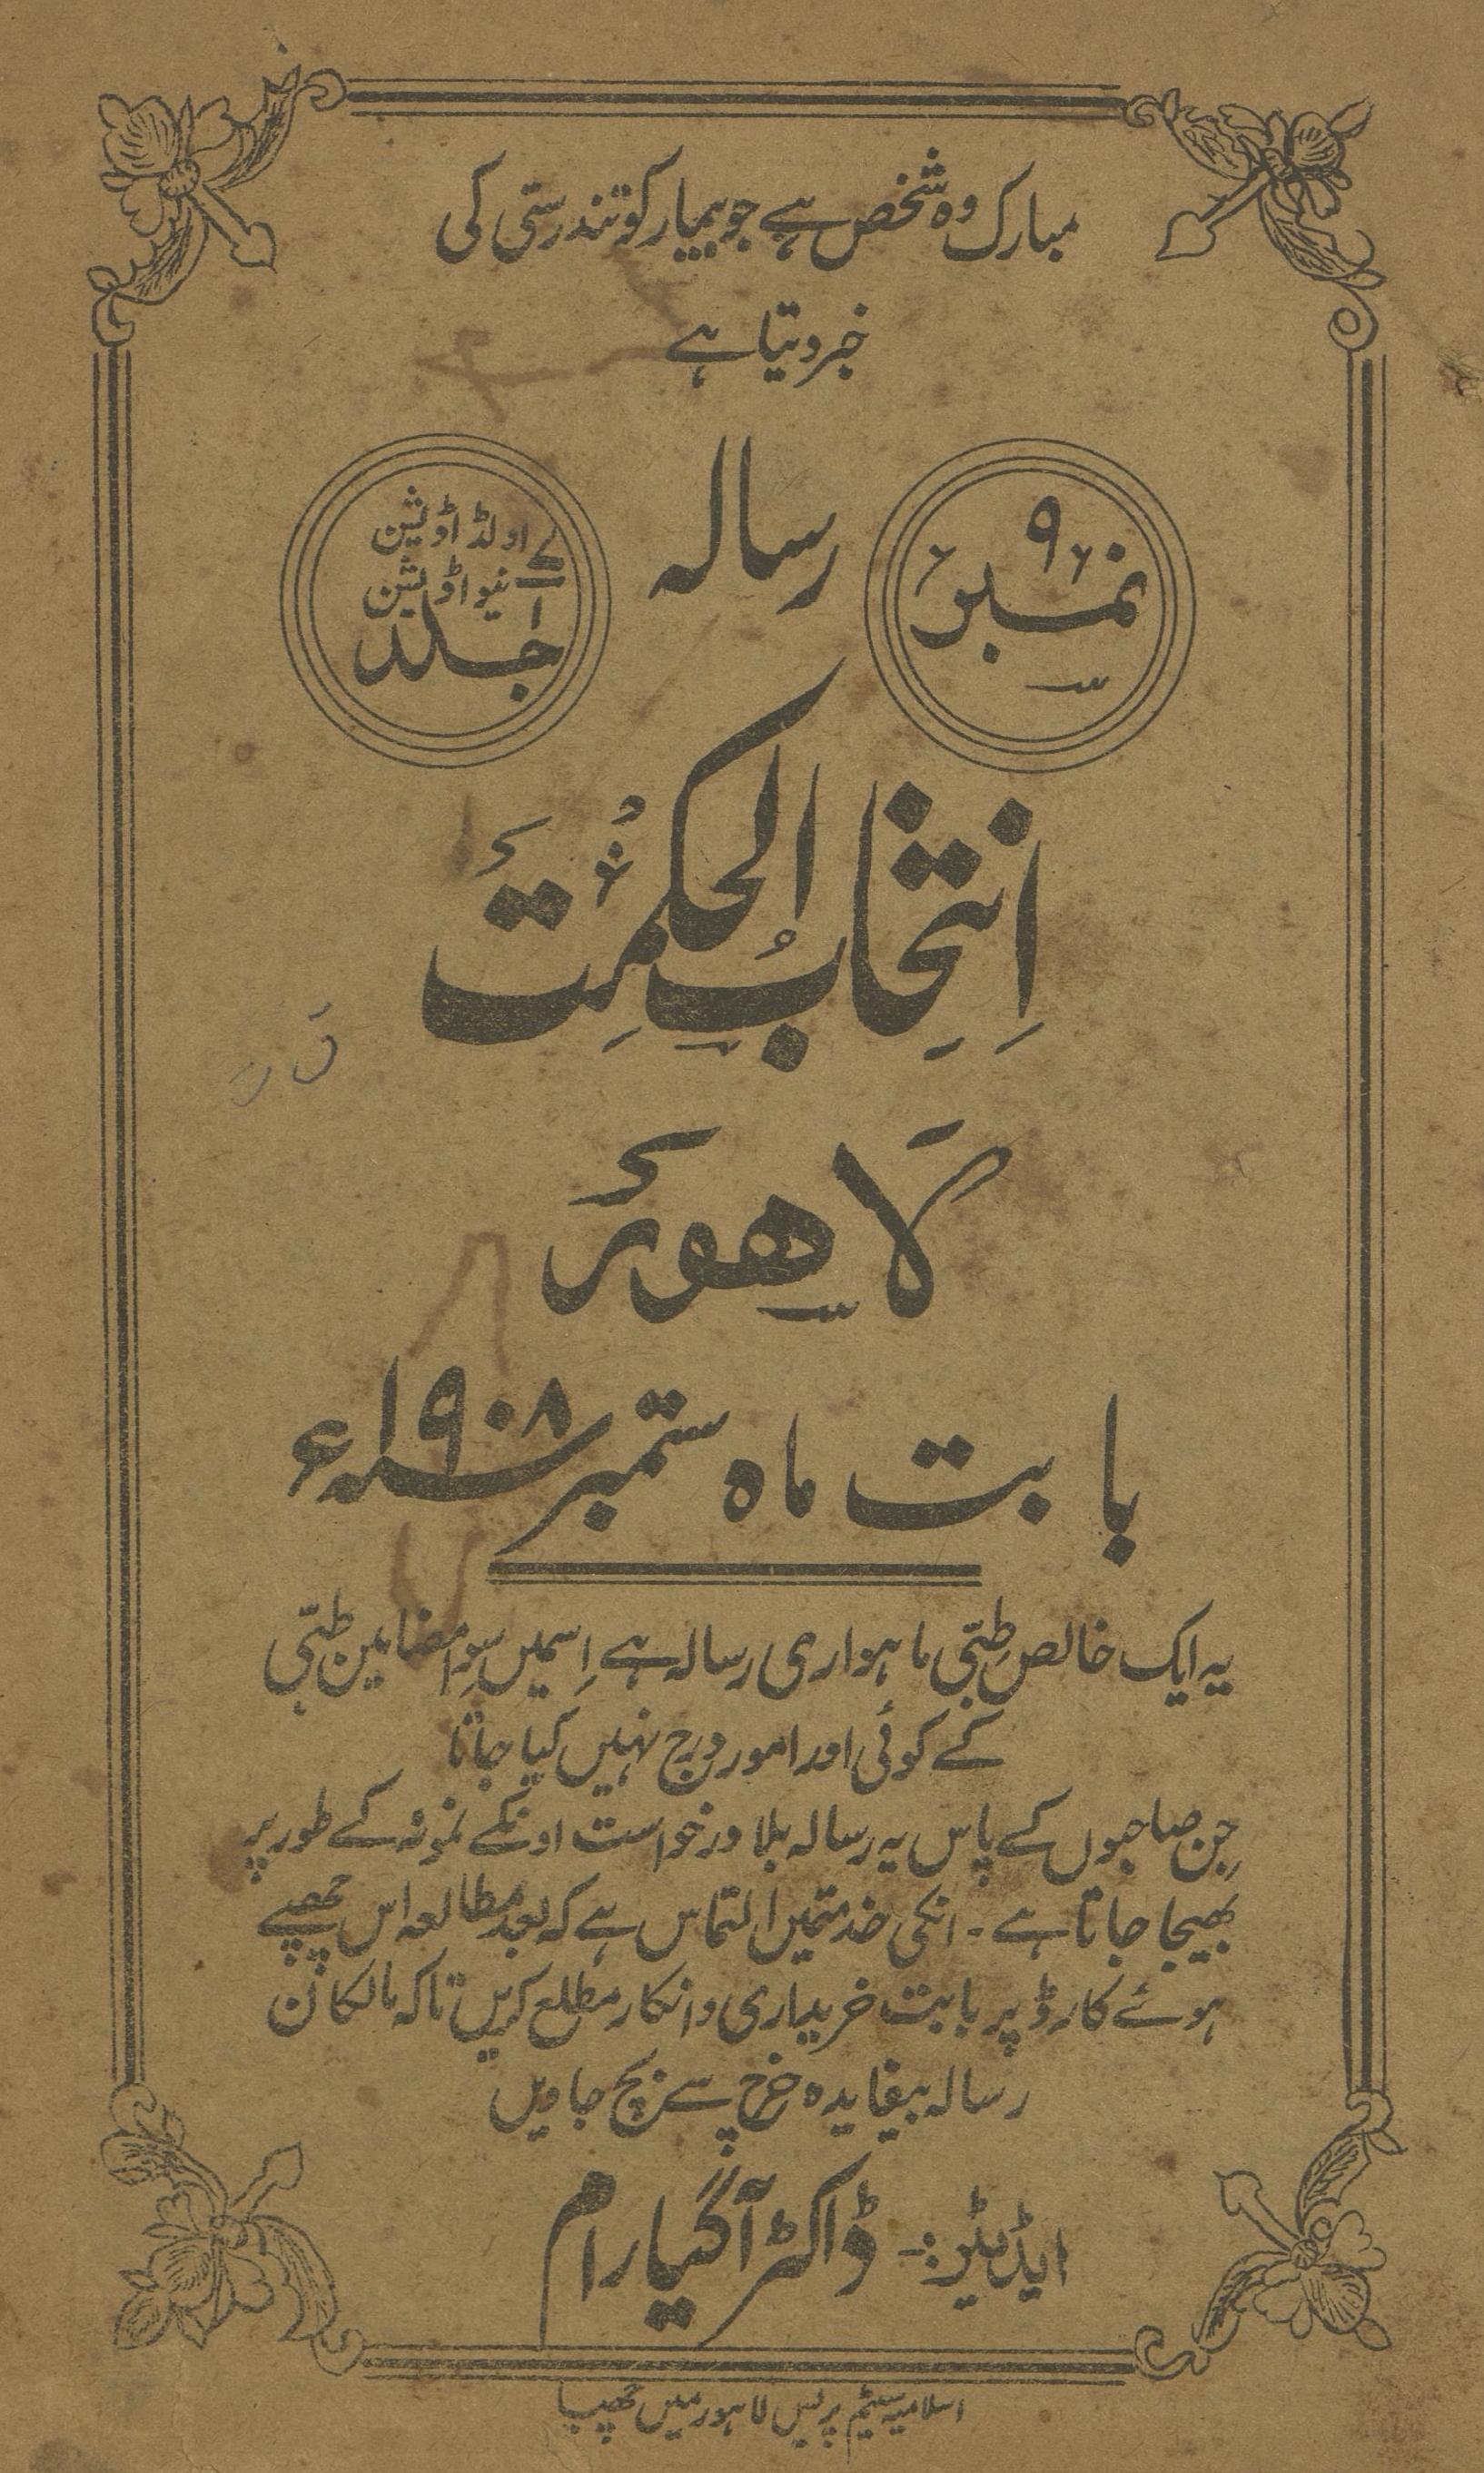 مبارک وہ شخص ہے جو بیمار کو تندرستی کی
خبر دیتا ہے
نمبر ۹
رسالہ
۷ اولڈ اڈیشن
نیو اڈیشن
جلد ۱
اِنتِخابُ الحکمِتَ
لاھوَر
بابت ماہ ستمبر ۱۹۰۸ء
یہ ایک خالص طِبّی ماہواری رسالہ ہے اِسمیں سِوا مضامین طِبّی
کے کوئی اور امور درج نہیں کیا جاتا
جِن صاحبوں کے پاس یہ رسالہ بلا درخواست اونکے نمونہ کے طور پر
بھیجا جاتا ہے ۔ انکی خدمتمیں التماس ہے کہ بعد مطالعہ اس چھپے
ہوئے کارڈ پر بابت خریداری و انکار مطلع کریں تاکہ مالکان
رسالہ بیفایدہ خرچ سے بچ جاویں
ایڈیٹر:۔ ڈاکٹر آگیا رام
اسلامیہ سٹیم پریس لاہور میں چھپا